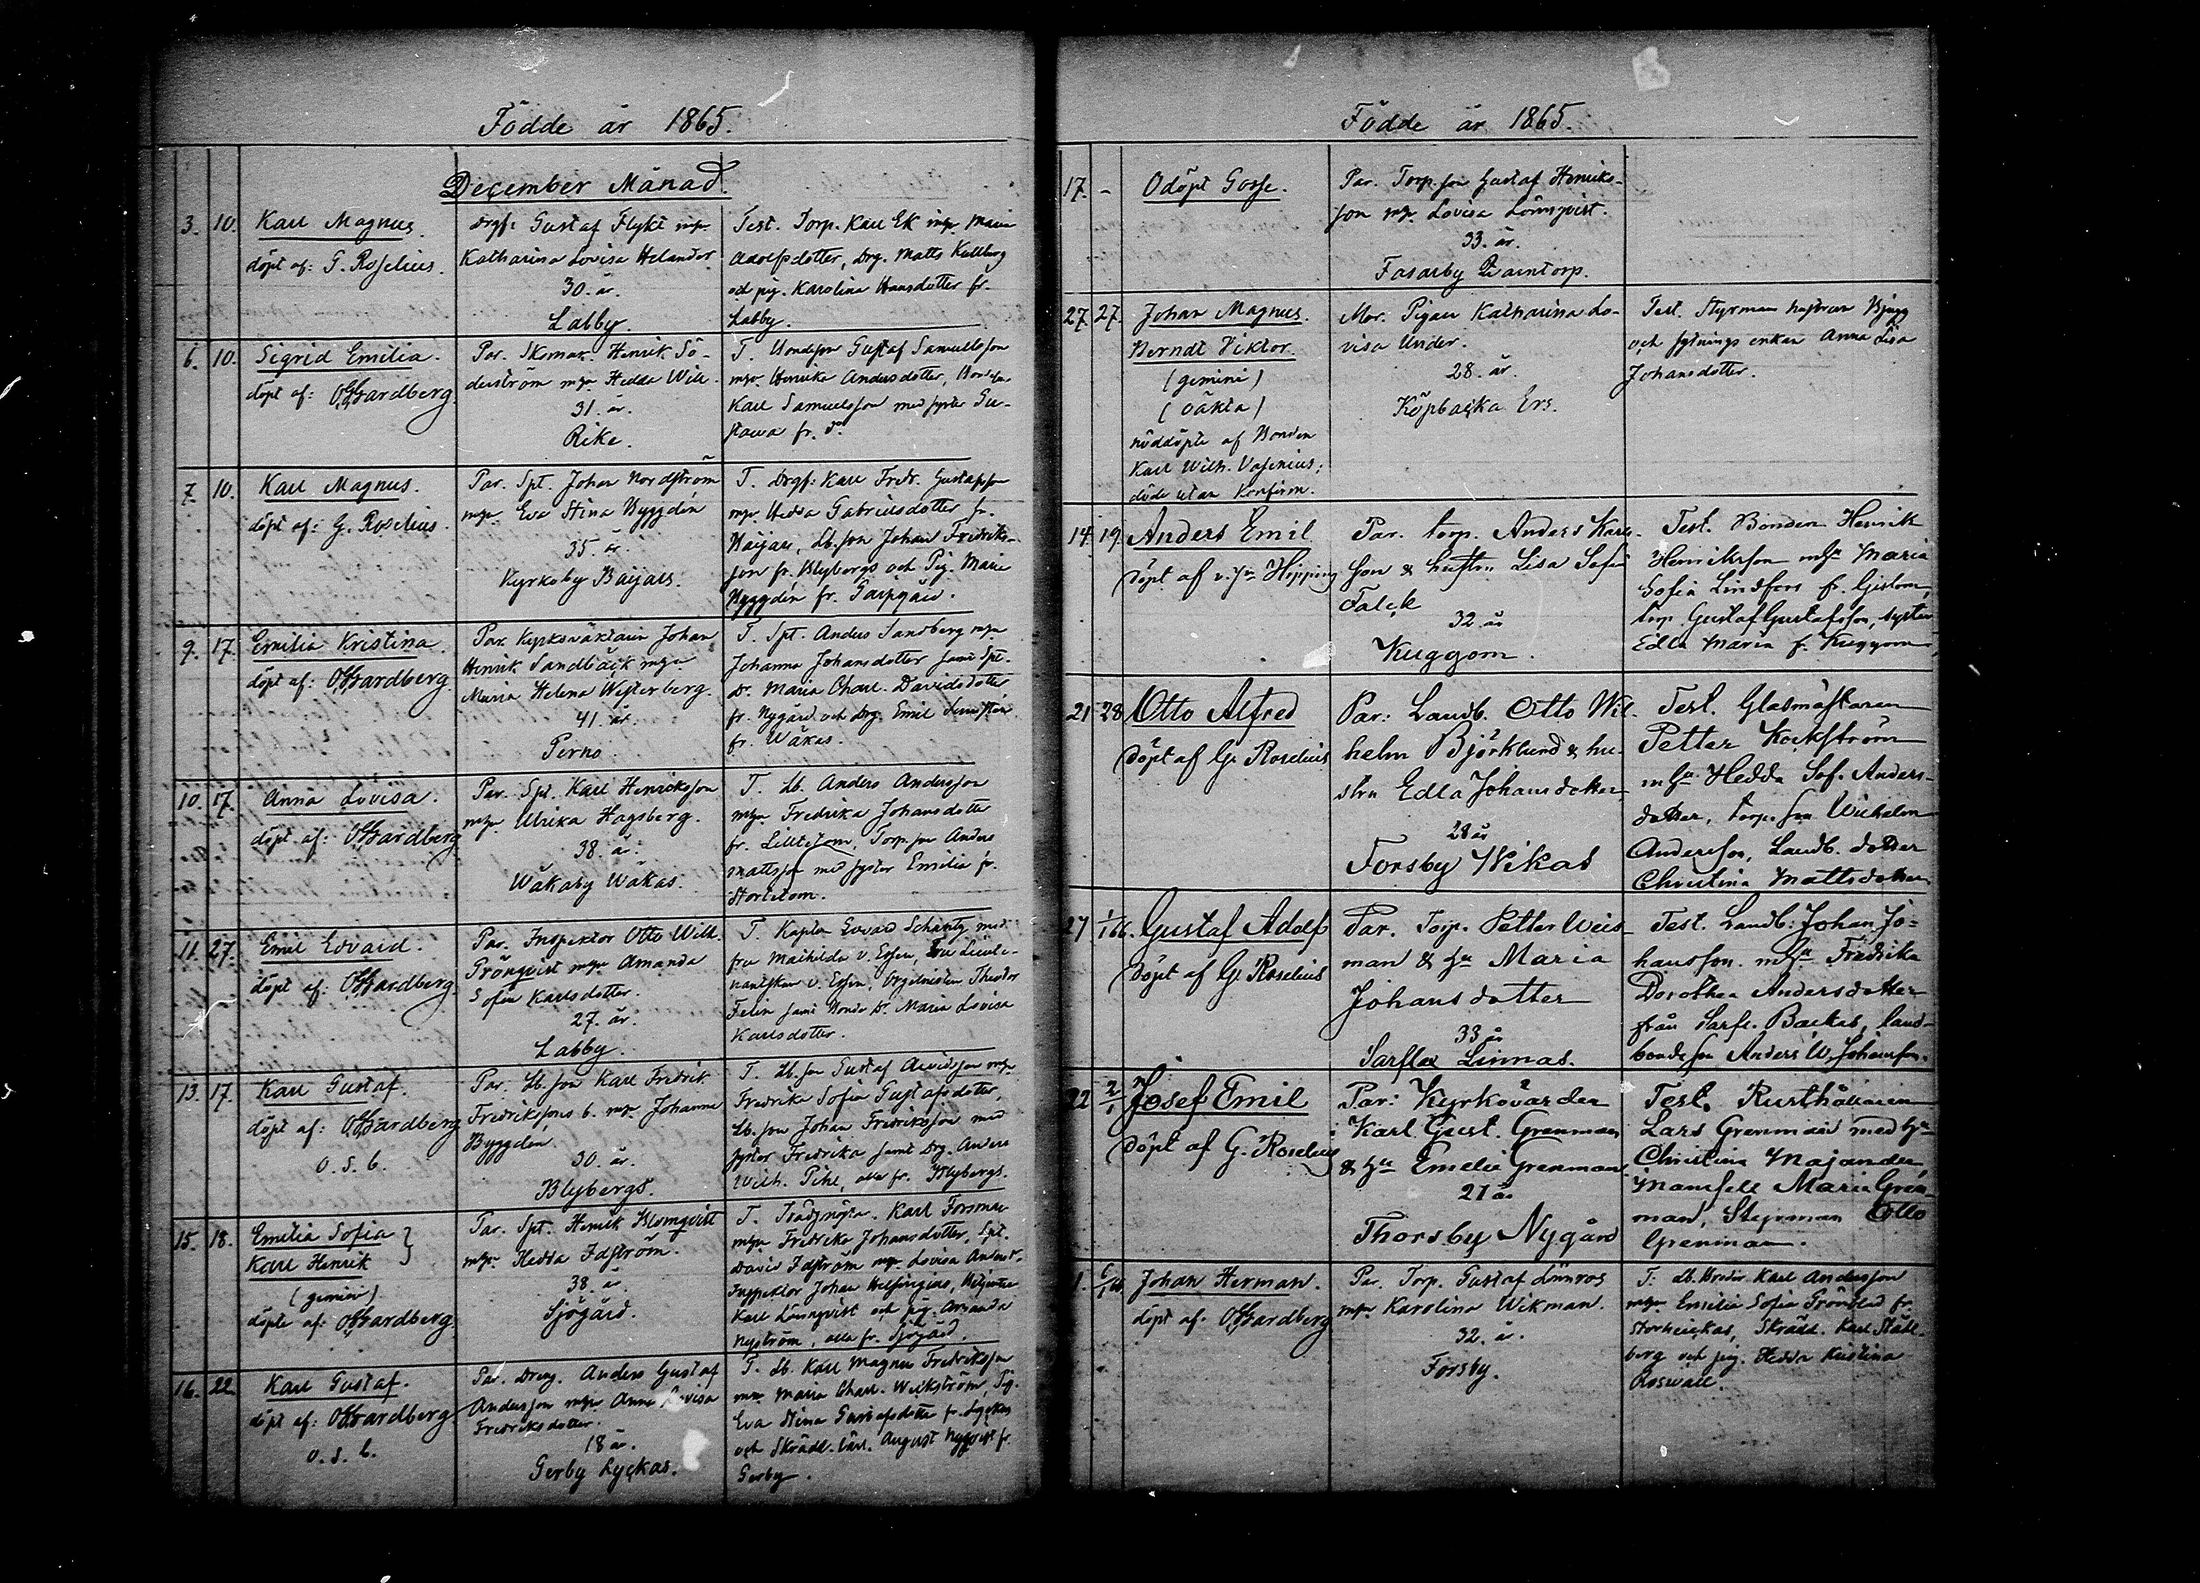 Födde år 1865.
December Månad.
3. 10. Karl Magnus.
döpt af: G. Roselius.
Drgf: Gustaf Flykt mhu
Katharina Lovisa Helander
30. år.
Labby.
Test. Torp. Karl Ek mhu Maria
Adolfsdotter, Drg. Matts Kullberg
och pig. Karolina Hansdotter fr.
Labby.
6. 10. Sigrid Emilia.
döpt af: Hardberg.
Par. Skomak. Henrik Sö-
derström mhu Hedda Wik.
31. år.
Rike.
T. Bondeson Gustaf Samuelsson
mhu Henrika Andersdotter,
Karl Samuelsson med syster Gu-
stava fr. d:o
7. 10. Karl Magnus.
döpt af: G. Roselius.
Par. Spt. Johan Nordström
mhu Eva Stina Byggdén
35. år.
Kyrkoby Baijars.
T. Drgf: Karl Fredr. Gustafsson
mhu Hedda Gabrielsdotter fr.
Baijars, Lb.son Johan Fredriks-
son fr. Blybergs och Pig. Maria
Byggdén fr.
9. 17. Emilia Kristina.
döpt af: Hardberg.
Par. Kyrkoväktaren Johan
Henrik Sandbäck mhu
Maria Helena Westerberg.
41. år.
Perno.
T. Spt. Anders Sandberg mhu
Johanna Johansdotter samt Spt.
D. Maria Charl. Davidsdotter
fr. Nygård och drg. Emil
fr. Wåkas.
10. 17. Anna Lovisa.
döpt af: Hardberg
Par. Spt. Karl Henriksson
mhu Ulrika Hagsberg.
38. år.
Wåkaby Wåkas.
T. Lb. Anders Andersson
mhu Fredrika Johansdotter
fr. Lilltesom, Torp.son Anders
Mattsson med syster Emilia fr.
11. 27. Emil Edvard.
döpt af: Hardberg.
Par. Inspektor Otto Wilh.
Grönqvist mhu Amanda
Sofia Karlsdotter.
27. år.
Labby.
T. Kapten Edvard Schantz med
fru Mathilda v. Essen, Fru Lieute-
nantskan v. Essen, Orgelnisten Theodor
Felin samt Bonde D. Maria Lovisa
Karlsdotter.
13. 17. Karl Gustaf.
döpt af: Hardberg
o. s. b.
Par. Lb. son Karl Fredrik
Fredrikssons b. mhu Johanna
Byggdén
30. år.
Blybergs.
T. Lb. son Gustaf Arvidsson mhu
Fredrika Sofia Gustafsdotter,
Lb. son Johan Fredriksson med
syster Fredrika samt Drg. Anders
Wilh. Pihl, alla fr. Blybergs.
15. 18. Emilia Sofia }
Karl Henrik
(gemini)
döpte af: Hardberg.
Par. Spt. Henrik Blomqvist
mhu Hedda Idström.
38. år
Sjögård.
T. Trädgmästa. Karl Forsman
mhu Fredrika Johansdotter, Spt.
David Idström mhu Lovisa
Inspektor Johan Helsingius,
Karl Lönnqvist och pig. Amanda
Nyström, alla fr. Sjögård.
16. 22. Karl Gustaf.
döpt af: Hardberg
o. s. b.
Par. Dreng. Anders Gustaf
Andersson mhu Anna Lovisa
Fredriksdotter.
18 år.
Gerby Lyckas.
T. Lb. Karl Magnus Fredriksson
mhu Maria Charl. Wickström, Pig.
Eva Stina Gustafsdotter fr. Lyckas
och Skrädd. lärl. August Nyqvist fr.
Gerby.
Födde år 1865.
17. - Odöpt Gosse.
Par. Torp.son Gustaf Henriks-
son mhu Lovisa Lönnqvist.
33. år.
Fasarby
27. 27. Johan Magnus.
Berndt Viktor.
(gemini)
(oäkta)
nöddöpte af Bonden
Karl Wilh. Vasenius;
döde utan konfirm.
Mor. Pigan Katharina Lo-
visa Under.
28. år.
Köpbacka Ers.
Test. Styrman hustrun Bjugg
och sytnings enkan Anna Lisa
Johansdotter.
14. 19. Anders Emil
döpt af v. p:n Hipping
Par. torp. Anders Karls-
son & hustru Lisa Sofia
Falck
32 år
Kuggom.
Test. Bonden Henrik
Henriksson m h:u Maria
Sofia Lindfors fr. Gislom,
torp. Gustaf Gustafsson, syster
Edla Maria fr. Kuggom
21 28 Otto Alfred
döpt af G. Roselius
Par: Landb. Otto Wil-
helm Björklund & hu-
stru Edla Johansdotter
28 år
Forsby Wikas
Test. Glasmästaren
Petter Kockström
m h:u Hedda Sof. Anders-
dotter, torp. son Wilhelm
Andersson, Landb. dotter
Christina Mattsdotter
27 1/1 66. Gustaf Adolf
döpt af G. Roselius
Par. Torp. Petter Weis-
man & h:u Maria
Johansdotter
33 år
Sarflax Linnas.
Test. Landb: Johan Jo-
hansson. m h:u Fredrika
Dorothea Andersdotter
från Sarfl. Backas, land-
bonde son Anders W. Johansson.
22 2/1 Josef Emil
döpt af G. Roselius
Par: Kyrkovärden
Karl Gust. Grenman
& h:u Emelie Grenman
21 år
Thorsby Nygård
Test. Rusthållaren
Lars Grenman med h:u
Christina Majander,
Mamsell Maria Gren-
man, Styrman Otto
Grenman.
1. 6/1 66. Johan Herman.
döpt af: Hardberg
Par. Torp. Gustaf Lönnros
mhu Karolina Wikman.
32. år.
Forsby.
T. Lb. Broder. Karl Andersson
mhu Emilia Sofia Grönblad fr.
Skrädd. Karl Ståhl-
berg och pig. Hedda Kristina
Roswall.